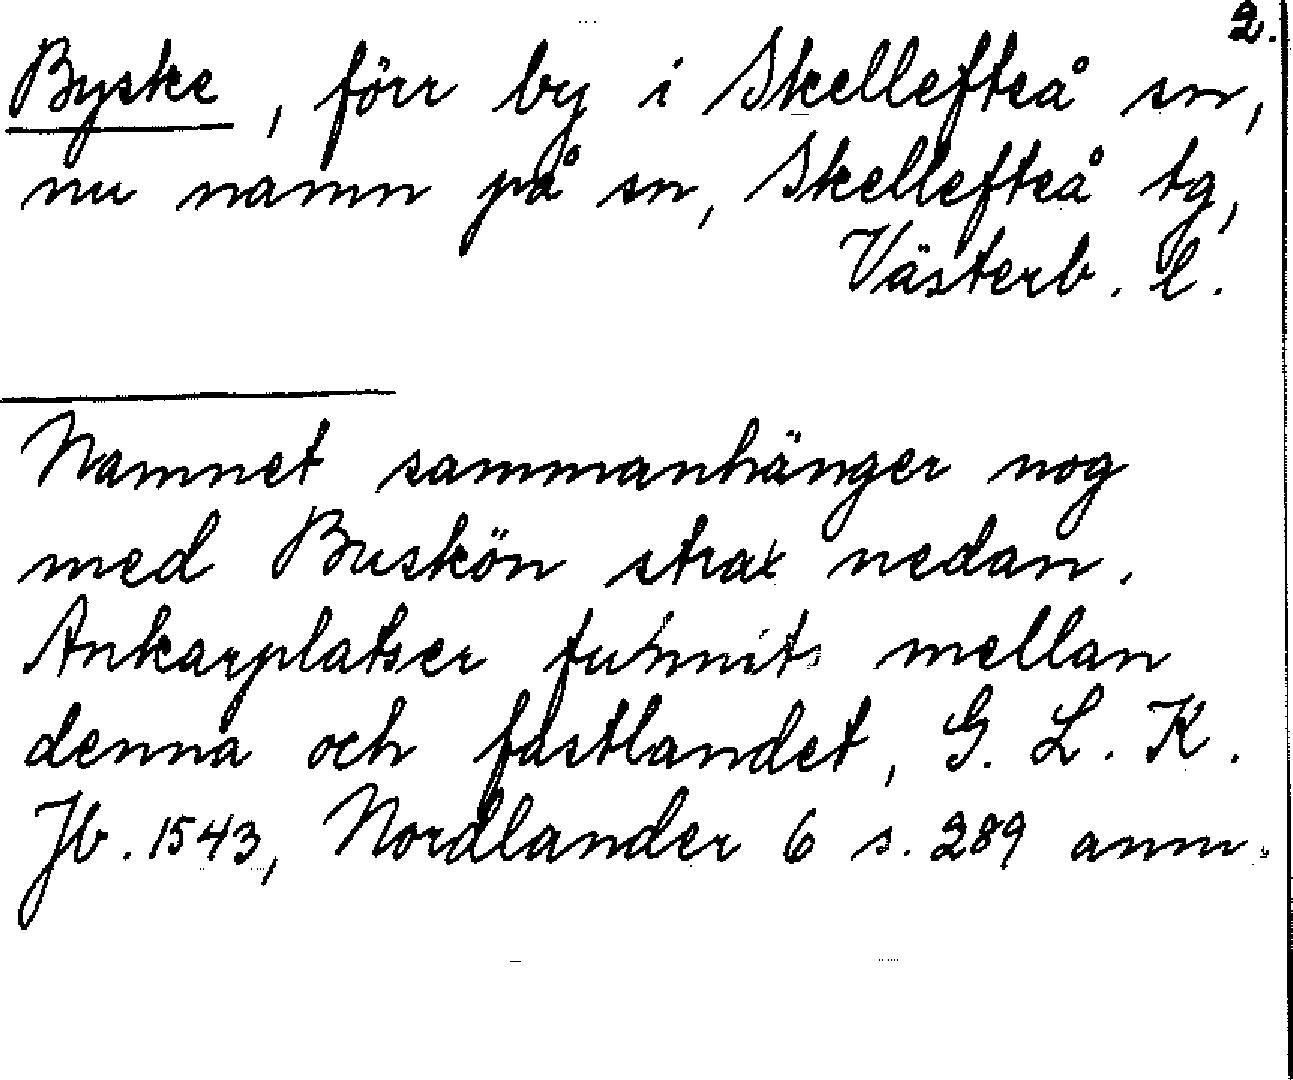 2.
Byske, förr by i Skellefteå sn,
nu namn på sn, Skellefteå tg,
Västerb. l.
Namnet sammanhänger nog
med Buskön strax nedan.
Ankarplatser funnits mellan
denna och fastlandet, G. L. K.
Jb. 1543, Nordlander 6 s. 289 anm.